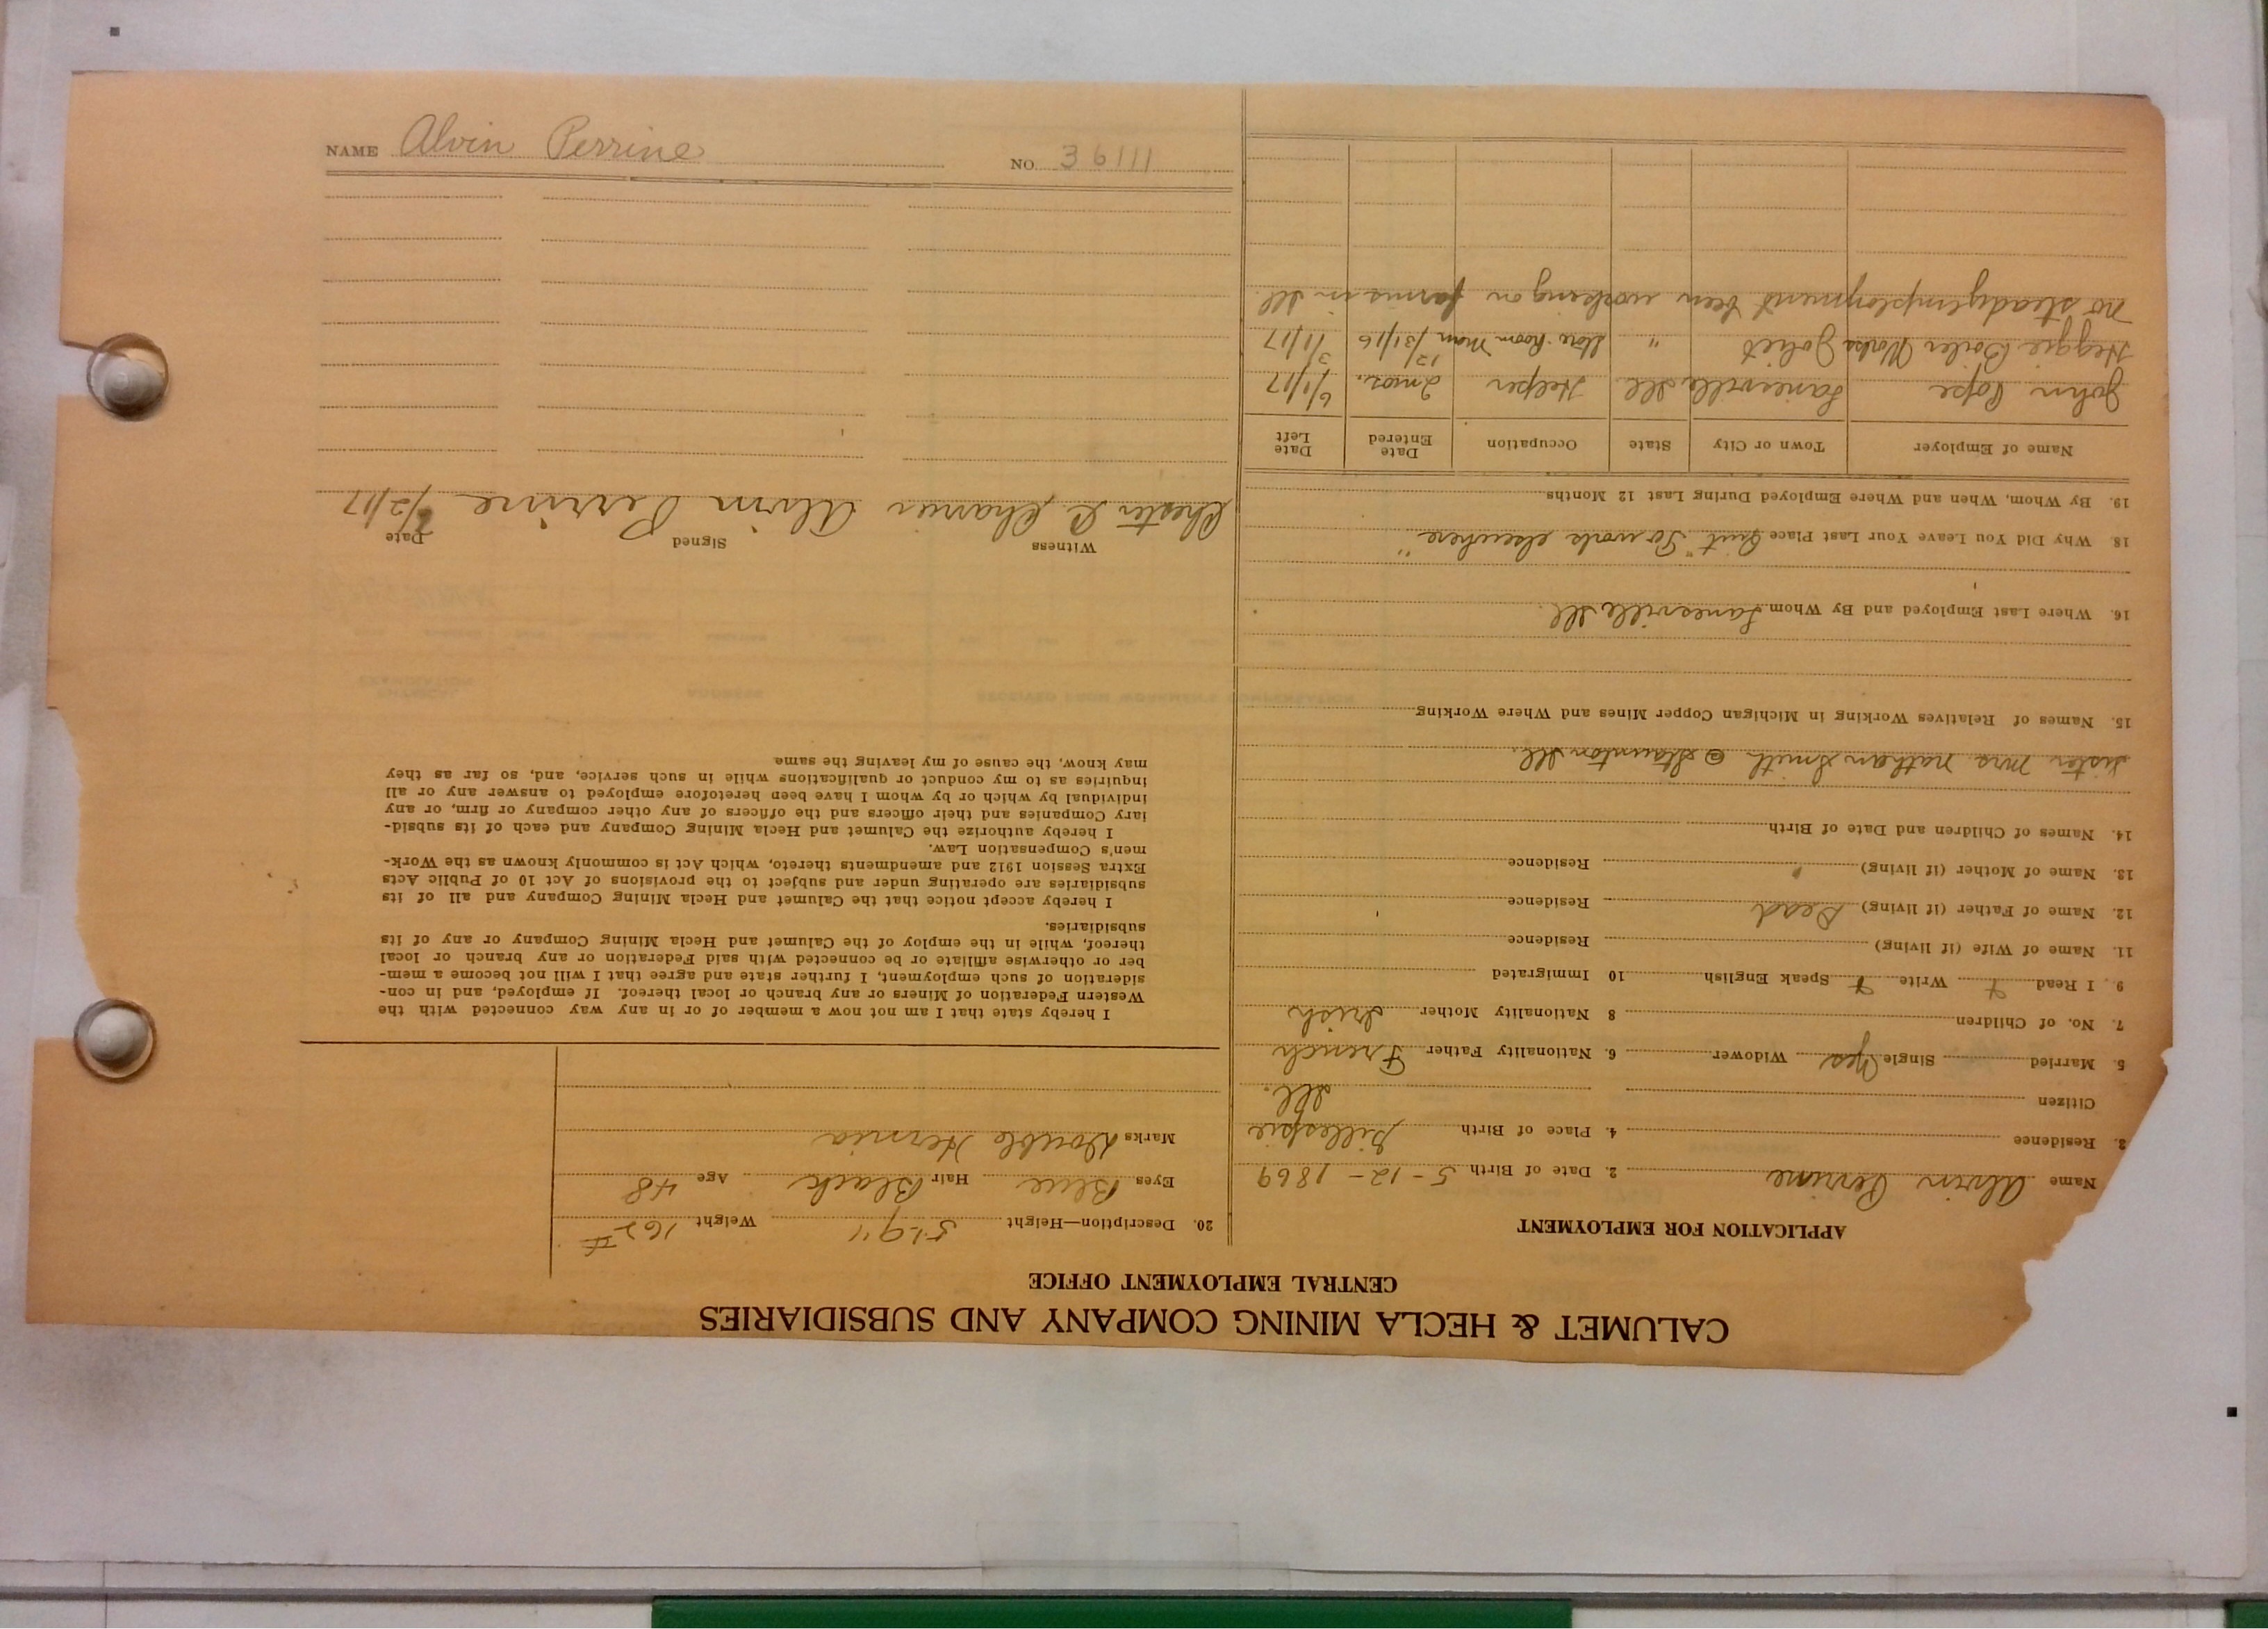 NAME Alvin Perrine NO. 36111
CALUMET & HECLA MINING COMPANY AND SUBSIDIARIES
CENTRAL EMPLOYMENT OFFICE
APPLICATION FOR EMPLOYMENT
Name Alvin Perrine 2. Date of Birth 5-12-1869
3. Residence 4. Place of Birth Gillespie
Citizen Ill.
5. Married Single Yes Widower 6. Nationality Father French
7. No. of Children 8 Nationality Mother Irish
9. I Read Write Speak English 10 Immigrated
11. Name of Wife (if living) Residence
12. Name of Father (if living) Dead Residence
13. Name of Mother (if living) " Residence
14. Names of Children and Date of Birth
Sister Mrs Nathan Smith @ Staunton Ill.
15. Names of Relatives Working in Michigan Copper Mines and Where Working
16. Where Last Employed and By Whom Lanesville Ill.
18. Why Did You Leave Your Last Place Quit "To work elsewhere"
19. By Whom, When and Where Employed During Last 12 Months
Name of Employer Town or City State Occupation Date Entered Date Left
John Pope Lanesville Ill Helper 2 mos. 6/1/17
Heggie Boiler Works Joliet " Store Room Man 12/31/16 3/1/17
No steady employment been working on farms in Ill.
20. Description—Height 5'9" Weight 162#
Eyes Blue Hair Black Age 48
Marks Double Hernia
I hereby state that I am not now a member of or in any way connected with the
Western Federation of Miners or any branch or local thereof. If employed, and in con-
sideration of such employment, I further state and agree that I will not become a mem-
ber or otherwise affiliate or be connected with said Federation or any branch or local
thereof, while in the employ of the Calumet and Hecla Mining Company or any of its
subsidiaries.
I hereby accept notice that the Calumet and Hecla Mining Company and all of its
subsidiaries are operating under and subject to the provisions of Act 10 of Public Acts
Extra Session 1912 and amendments thereto, which Act is commonly known as the Work-
men's Compensation Law.
I hereby authorize the Calumet and Hecla Mining Company and each of its subsid-
iary Companies and their officers and the officers of any other company or firm, or any
individual by which or by whom I have been heretofore employed to answer any or all
inquiries as to my conduct or qualifications while in such service, and, so far as they
may know, the cause of my leaving the same.
Witness Signed Date
Chester Alvin Perrine /2/17